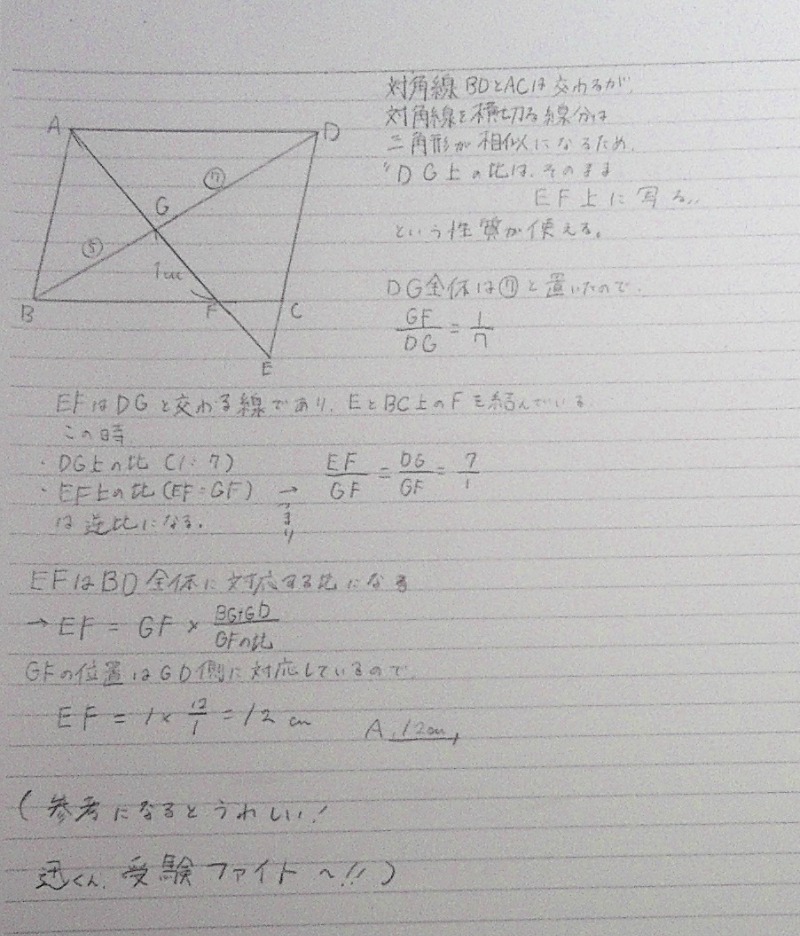 対角線BDとACは交わるが、
対角線を横切る線分は
三角形が相似になるため、
"DG上の比は、そのまま
EF上に写る"
という性質が使える。
A
D
G
⑦
⑤
1cm
B
F
C
E
DG全体は⑦と置いたので、
GF/DG = 1/7
EFはDGと交わる線であり、EとBC上のFを結んでいる
この時、
・DG上の比(1:7)
・EF上の比(EF:GF)
は逆比になる。
→ つまり
EF/GF = DG/GF = 7/1
EFはBD全体に対応する比になる
→ EF = GF × BG+GD/GFの比
GFの位置はGD側に対応しているので、
EF = 1 × 12/1 = 12 cm
A, 12cm,
(参考になるとうれしい!
迅くん、受験ファイト〜!!)